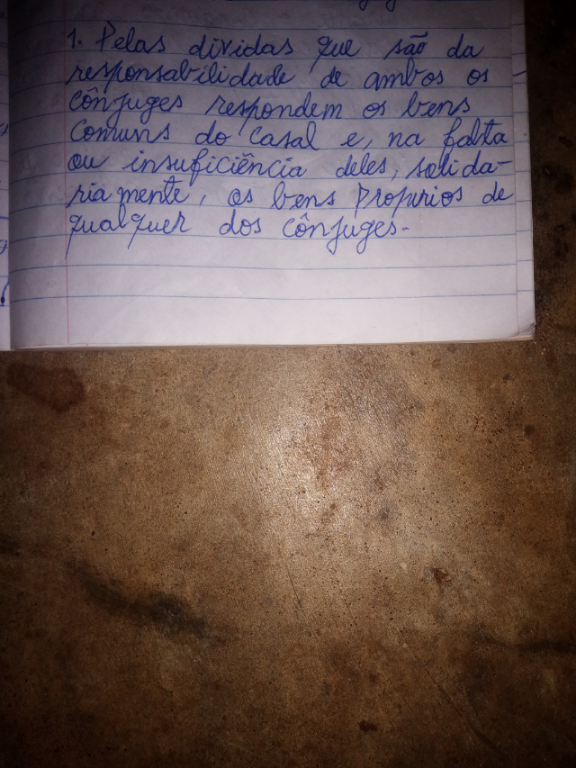 1. Pelas dividas que são da
responsabilidade de ambos os
cônjuges respondem os bens
comuns do casal e, na falta
ou insuficiência deles, solida-
riamente, os bens proprios de
qualquer dos cônjuges.